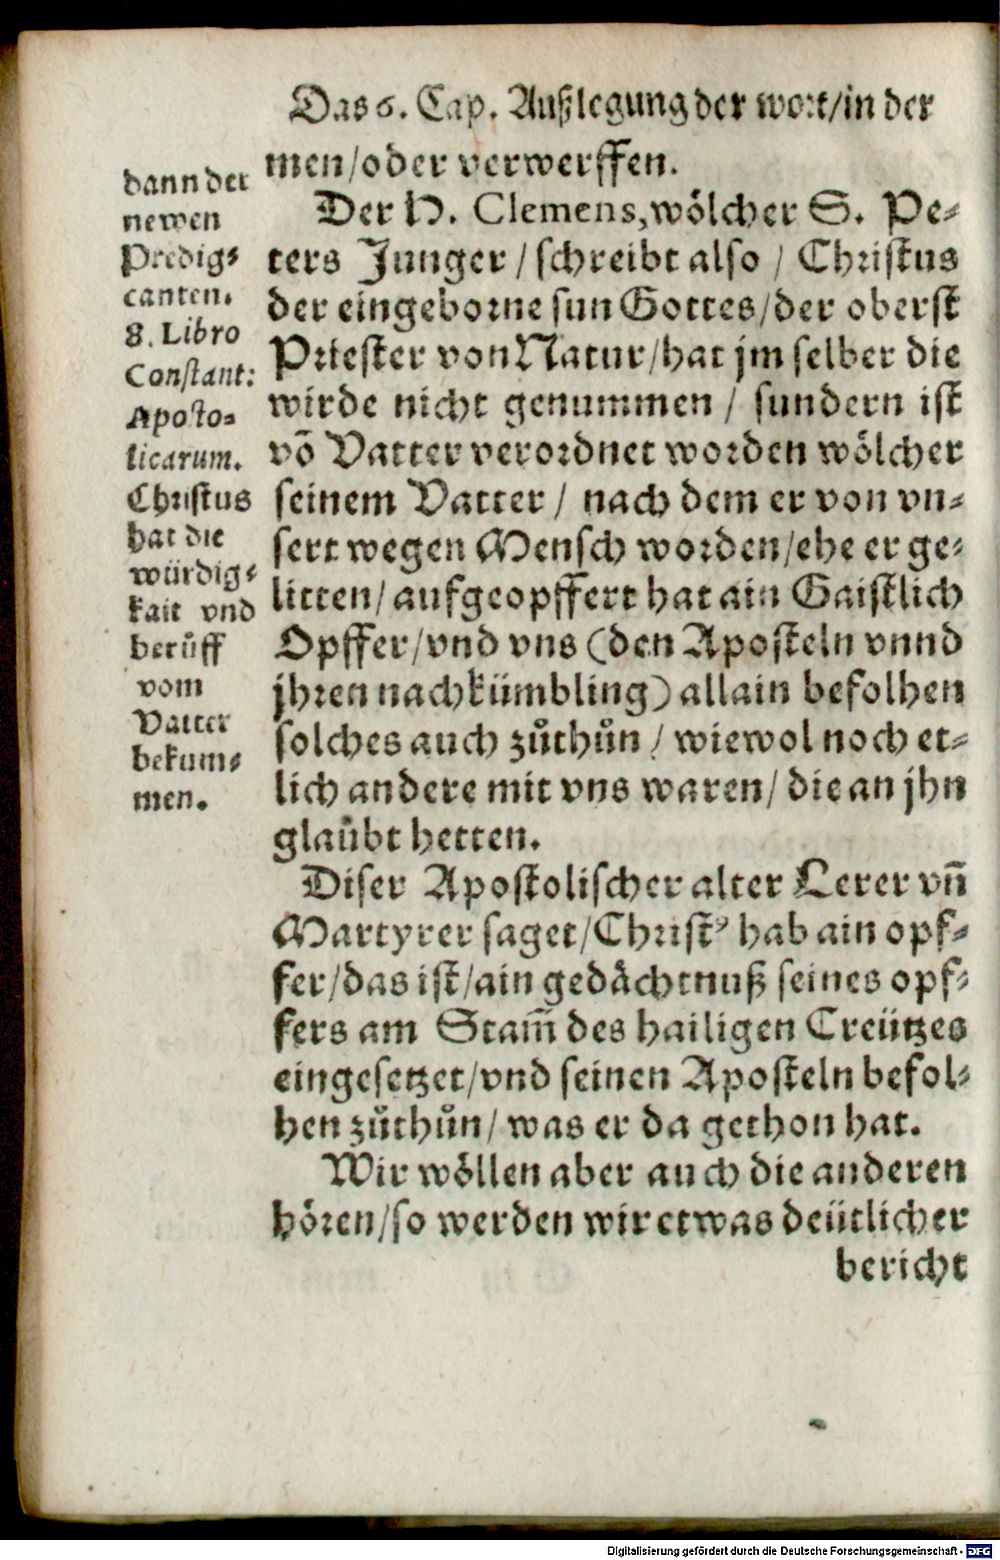 Das 6. Cap. Außlegung der wort/in der
men/oder verwerffen.
Der H. Clemens, wölcher S. Pe-
ters Junger/schreibt also/Christus
der eingeborne sun Gottes/der oberst
Priester von Natur/hat jm selber die
wirde nicht genummen/sundern ist
võ Vatter verordnet worden wölcher
seinem Vatter/nach dem er von vn-
sert wegen Mensch worden/ehe er ge-
litten/aufgeopffert hat ain Gaistlich
Opffer/vnd vns (den Aposteln vnnd
jhren nachkümbling) allain befolhen
solches auch zůthůn/wiewol noch et-
lich andere mit vns waren/die an jhn
glaůbt hetten.
Diser Apostolischer alter Lerer vñ
Martyrer saget/Christꝰ hab ain opf-
fer/das ist/ain gedächtnuß seines opf-
fers am Stam̃ des hailigen Creützes
eingesetzet/vnd seinen Aposteln befol-
hen zůthůn/was er da gethon hat.
Wir wöllen aber auch die anderen
hören/so werden wir etwas deütlicher
bericht
dann der
newen
Predig-
canten.
8. Libro
Constant:
Aposto-
licarum.
Christus
hat die
würdig-
kait vnd
berůff
vom
Vatter
bekum-
men.
Digitalisierung gefördert durch die Deutsche Forschungsgemeinschaft - DFG